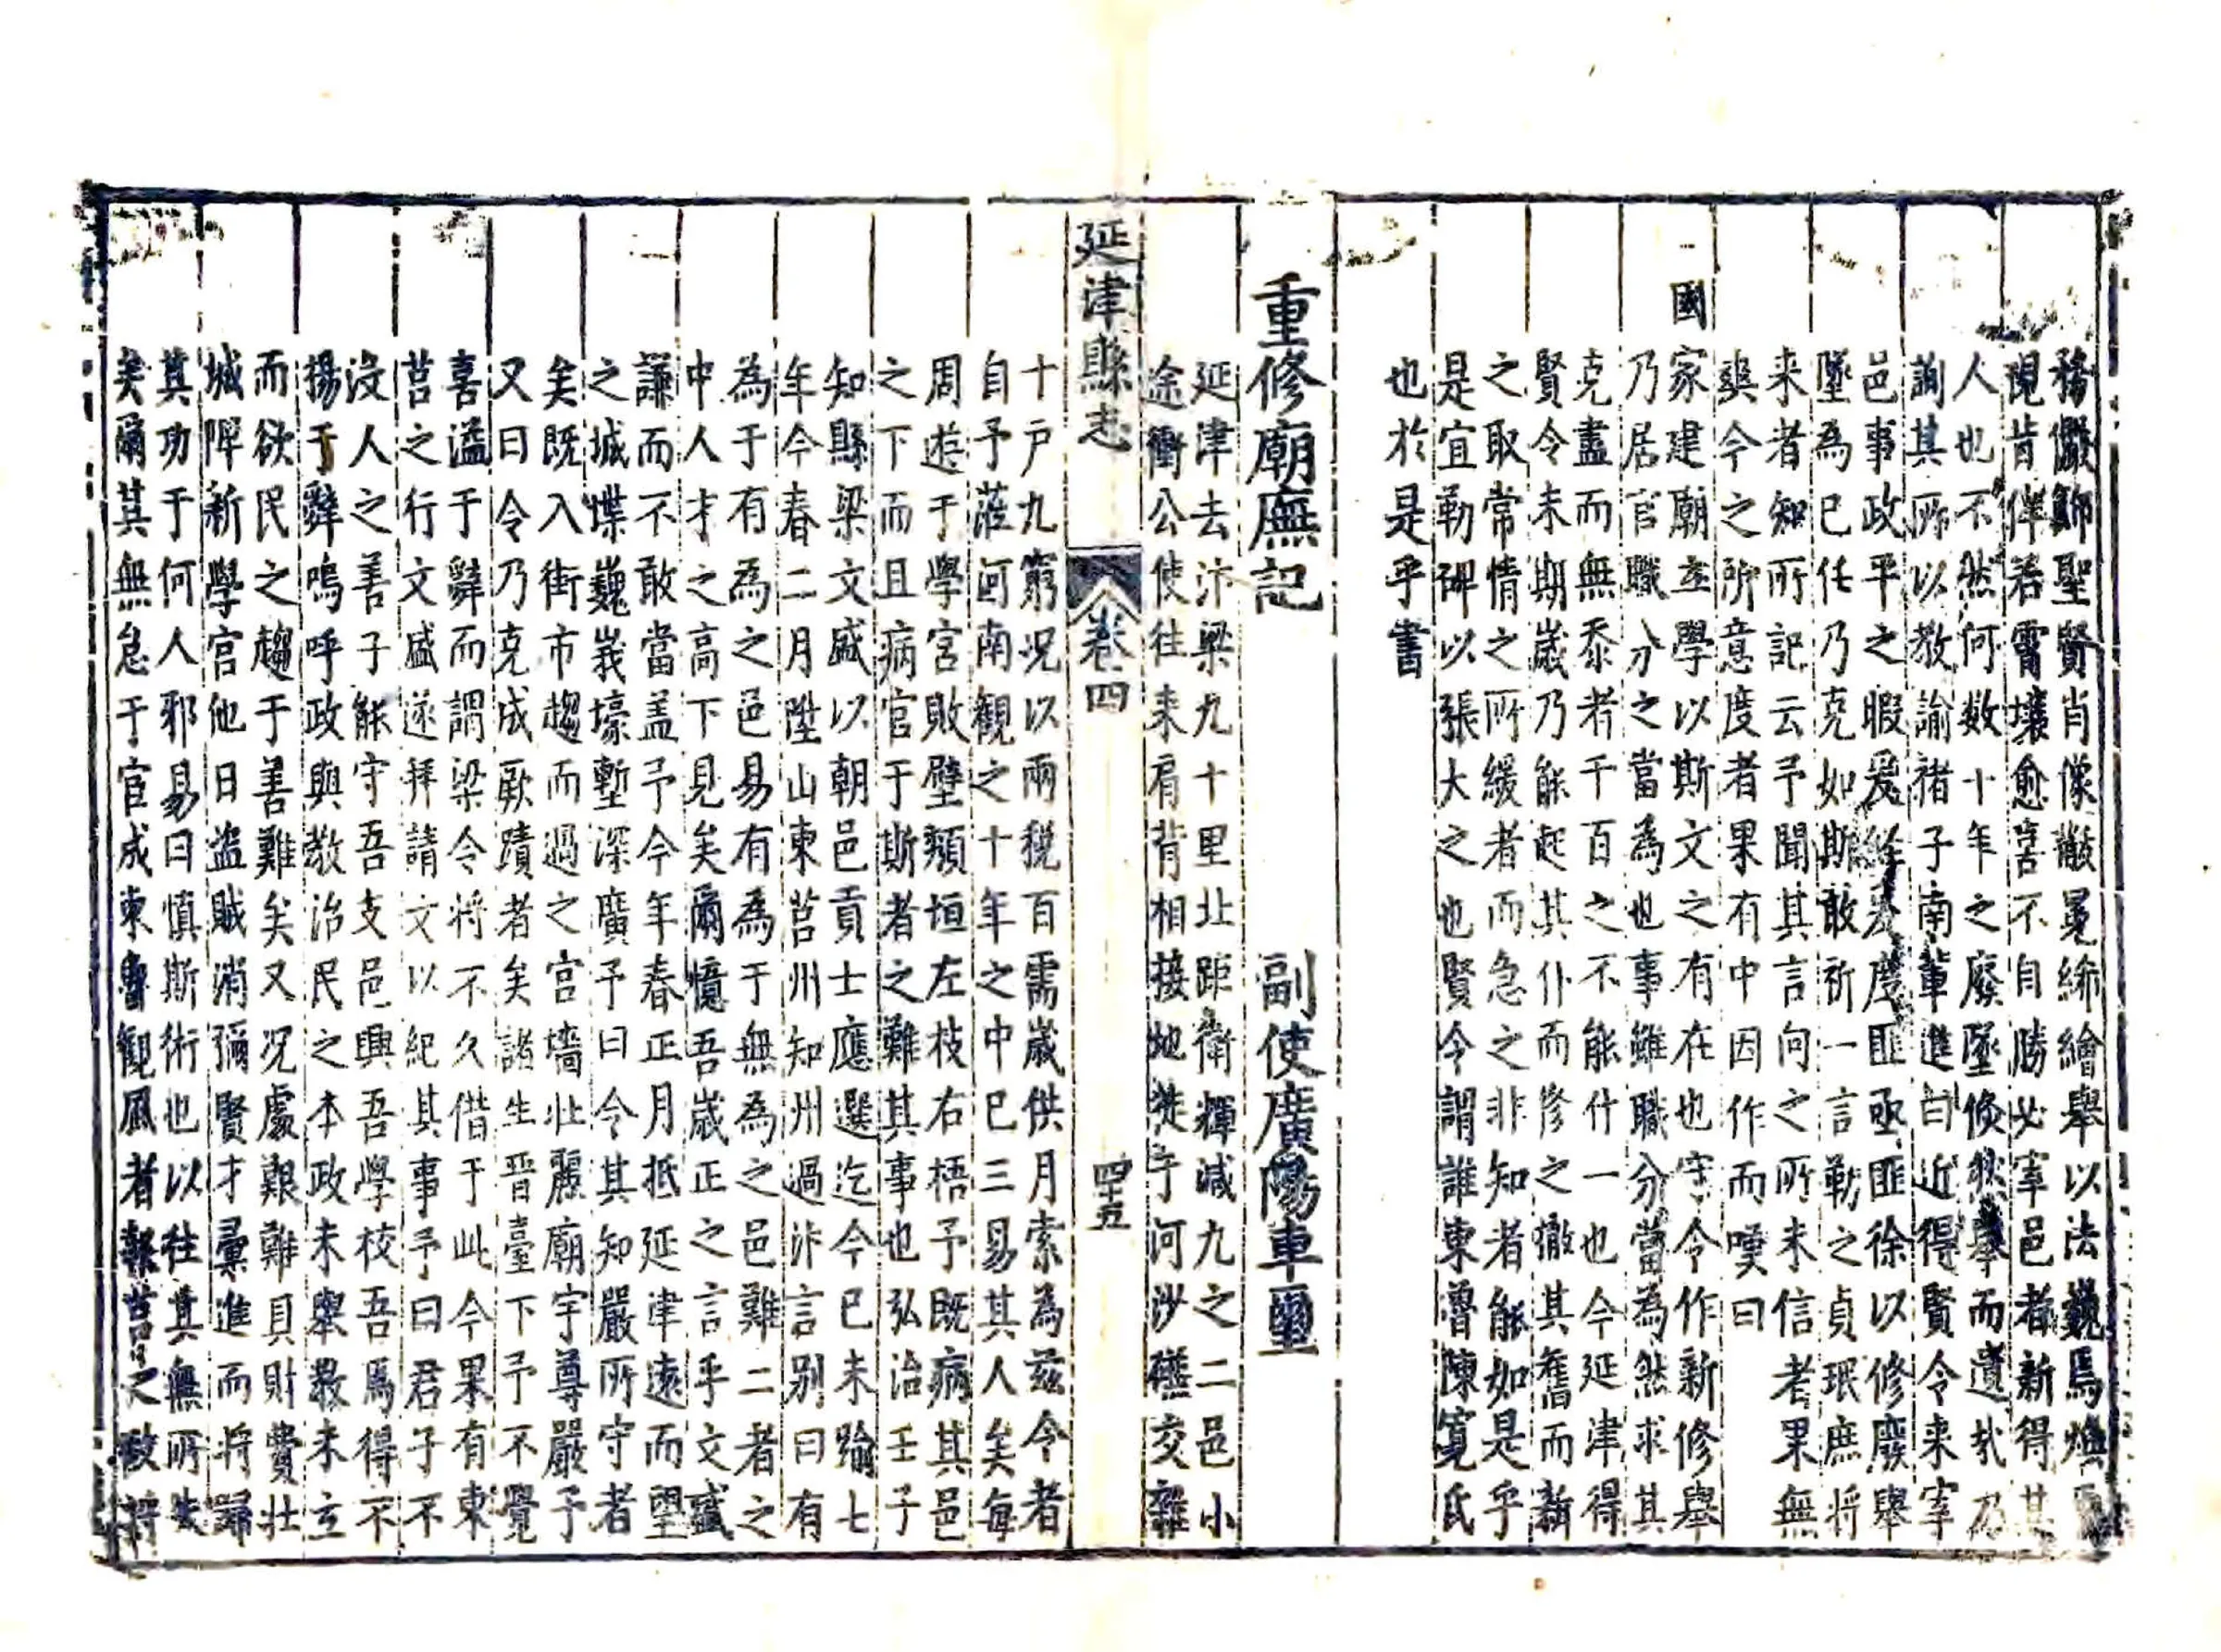 務儼飾聖賢肖像黻冕絺繪舉以法巍焉煥
覩昔伴若霄壤愈喜不自勝必宰邑者新得其
人也不然何数十年之廢墜倐然舉而遺扵乃
詢其所以教諭褚子南輩進曰近得賢令来宰
邑事政平之暇爰匪亟匪徐以修廢舉
墜為已任乃克如斯敢祈一言勒之貞珉庶将
来者知所記云予聞其言向之所未信者果無
爽今之所意度者果有中因作而嘆曰
國家建廟立學以斯文之有在也守令作新修舉
乃居官職分之當為也事雖職分當為然求其
克盡而無忝者千百之不能什一也今延津得
賢令未期歲乃能起其仆而修之徹其舊而新
之取常情之所緩者而急之非知者能如是乎
是宜勒碑以張大之也賢令謂誰東魯陳寬氏
也於是乎書
重修廟廡記 副使廣陽車璽
延津去汴梁九十里北距衛輝减九之二邑小
途衝公使往来肩背相接地徙于河沙磽交雜
延津縣志 卷四 四十五
十戸九窮况以兩税百需歲供月索為兹令者
自予蒞河南觀之十年之中已三易其人矣每
周遊于學宮敗壁頽垣左枝右梧予既病其邑
之下而且病官于斯者之難其事也弘治壬子
知縣梁文盛以朝邑貢士應選迄今已未踰七
年今春二月陞山東莒州知州過汴言别曰有
為于有為之邑易有為于無為之邑難二者之
中人才之高下見矣爾憶吾歲正之言乎文盛
謙而不敢當盖予今年春正月抵延津遠而望
之城堞巍峩壕塹深廣予曰令其知嚴所守者
矣既入街市趨而過之宮墻壮麗廟宇尊嚴予
又曰令乃克成厥蹟者矣諸生晋臺下予不覺
喜溢于辭而謂梁令将不久借于此今果有東
莒之行文盛遂拜請文以紀其事予曰君子不
没人之善子能守吾支邑興吾學校吾焉得不
揚于辭嗚呼政與教治民之本政未舉教未立
而欲民之趨于善難矣又况處艱難貝財費壮
城隍新學宮他日盗賊消彌賢才彚進而将歸
其功于何人邪易曰慎斯術也以往其無所失
矣爾其無怠于官成東魯觀風者報莒之政将